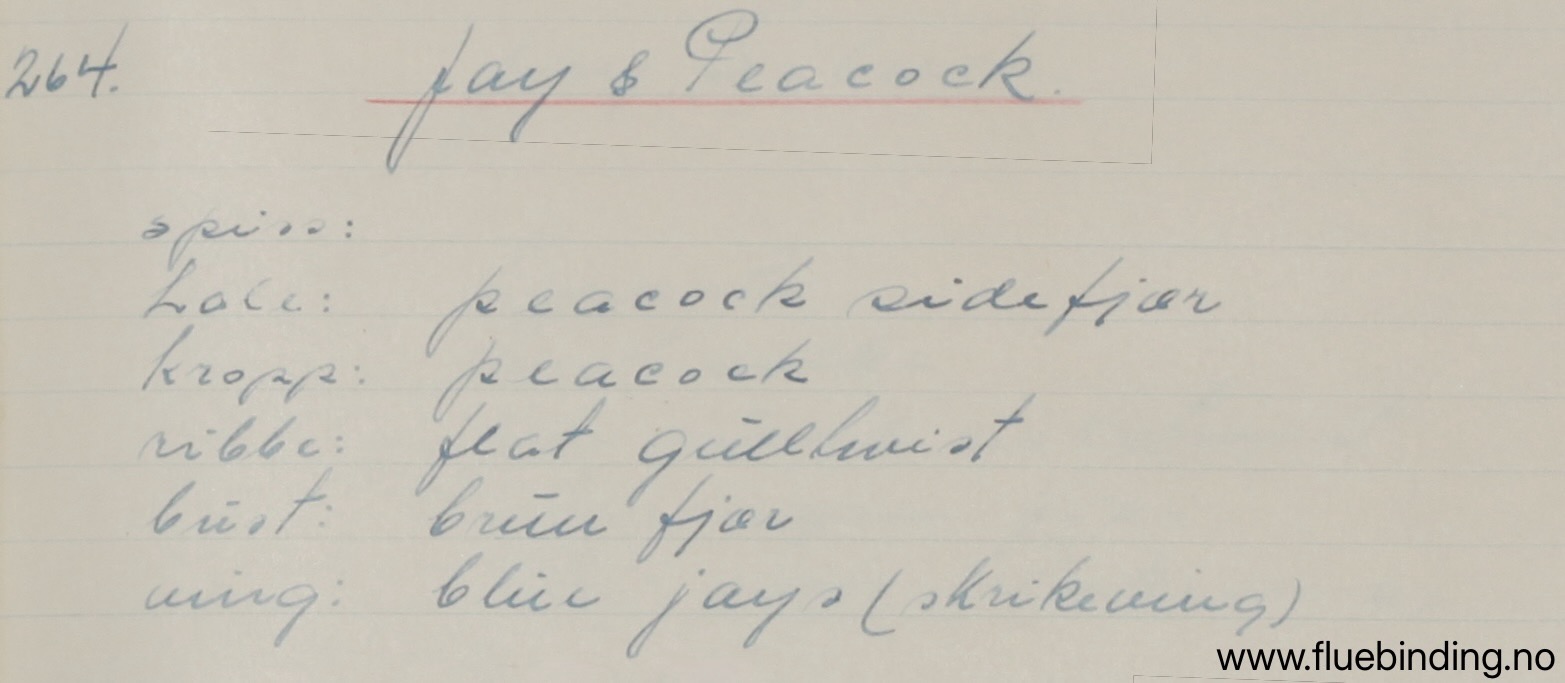 264. Jay & Peacock.
spiss:
hale: peacock sidefjær
kropp: peacock
ribbe: flat gulltwist
bust: brun fjær
ving: blue jays (skrikeving)
www.fluebinding.no